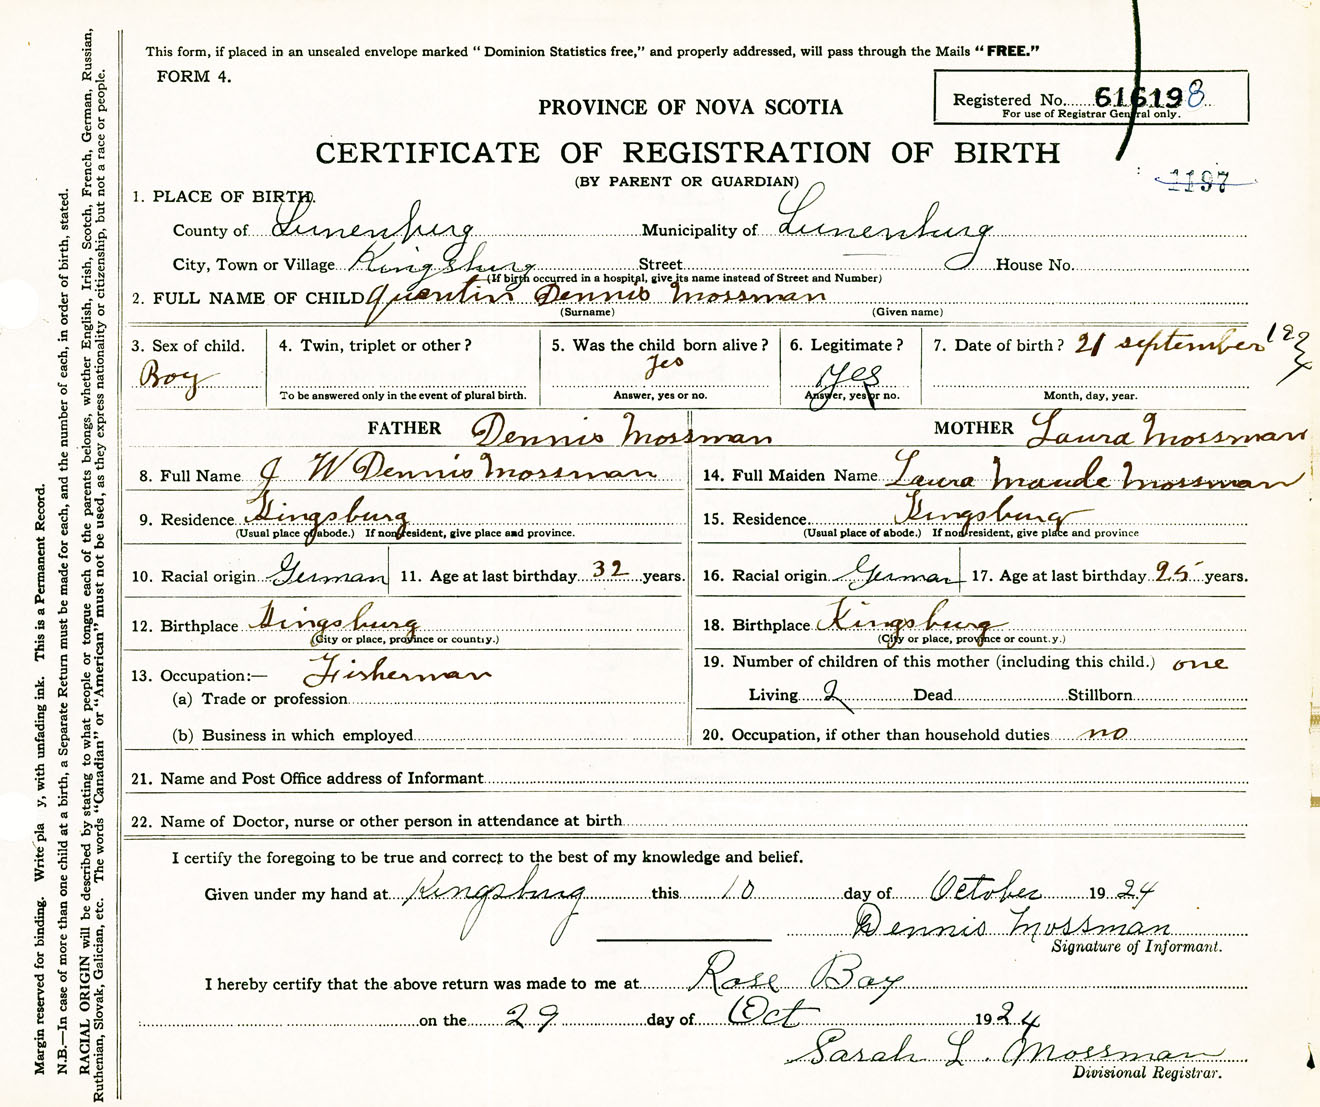 This form, if placed in an unsealed envelope marked "Dominion Statistics free," and properly addressed, will pass through the Mails "FREE."
FORM 4.
Registered No. 616198
For use of Registrar General only.
PROVINCE OF NOVA SCOTIA
CERTIFICATE OF REGISTRATION OF BIRTH
(BY PARENT OR GUARDIAN)
1197
1. PLACE OF BIRTH.
County of Lunenburg Municipality of Lunenburg
City, Town or Village Kingsburg Street House No.
(If birth occurred in a hospital, give its name instead of Street and Number)
2. FULL NAME OF CHILD Quentin Dennis Mossman
(Surname) (Given name)
3. Sex of child. Boy
4. Twin, triplet or other?
To be answered only in the event of plural birth.
5. Was the child born alive? Yes
Answer, yes or no.
6. Legitimate? Yes
Answer, yes or no.
7. Date of birth? 21 september 1924
Month, day, year.
FATHER Dennis Mossman
MOTHER Laura Mossman
8. Full Name J W Dennis Mossman
14. Full Maiden Name Laura Maude Mossman
9. Residence Kingsburg
(Usual place of abode.) If nonresident, give place and province.
15. Residence Kingsburg
(Usual place of abode.) If nonresident, give place and province
10. Racial origin German 11. Age at last birthday 32 years.
16. Racial origin German 17. Age at last birthday 25 years.
12. Birthplace Kingsburg
(City or place, province or country.)
18. Birthplace Kingsburg
(City or place, province or count.y.)
13. Occupation:— Fisherman
(a) Trade or profession
(b) Business in which employed
19. Number of children of this mother (including this child.) one
Living 2 Dead Stillborn
20. Occupation, if other than household duties no
21. Name and Post Office address of Informant
22. Name of Doctor, nurse or other person in attendance at birth
I certify the foregoing to be true and correct to the best of my knowledge and belief.
Given under my hand at Kingsburg this 10 day of October 1924
Dennis Mossman
Signature of Informant.
I hereby certify that the above return was made to me at Rose Bay
on the 29 day of Oct 1924
Sarah L. Mossman
Divisional Registrar.
Margin reserved for binding. Write pla y, with unfading ink. This is a Permanent Record.
N.B.—In case of more than one child at a birth, a Separate Return must be made for each, and the number of each, in order of birth, stated.
RACIAL ORIGIN will be described by stating to what people or tongue each of the parents belongs, whether English, Irish, Scotch, French, German, Russian,
Ruthenian, Slovak, Galician, etc. The words "Canadian" or "American" must not be used, as they express nationality or citizenship, but not a race or people.